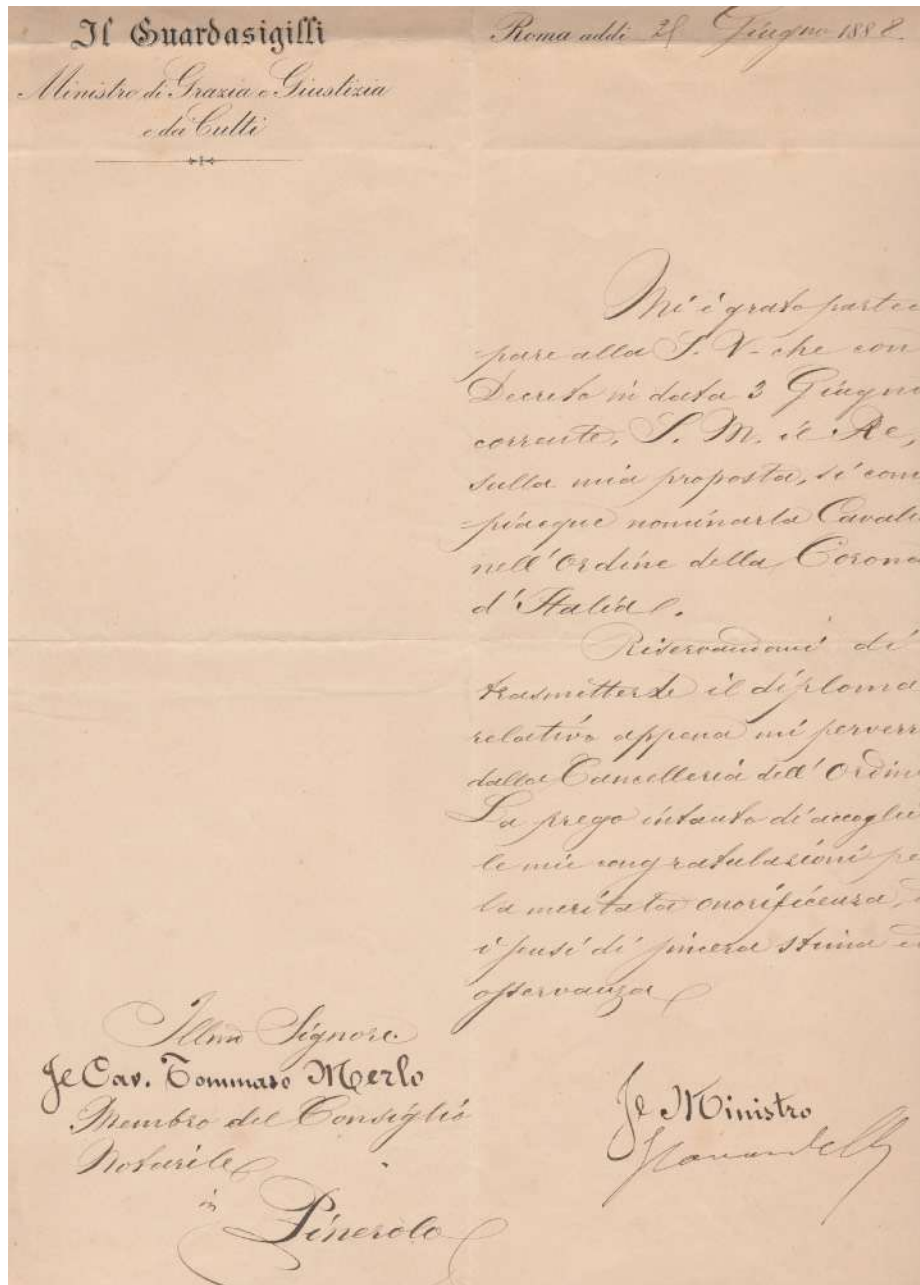 Il Guardasigilli
Ministro di Grazia e Giustizia
e dei Culti
Roma addì Giugno 1888
Mi è grato parteci
pare alla S. V. che con
Decreto in data 3 Giugno
corrente, S. M. il Re,
sulla mia proposta, si com
piacque nominarla Cavali
nell'Ordine della Corona
d'Italia.
Riservandomi di
trasmetterle il diploma
relativo appena mi perverr
dalla Cancelleria dell'Ordine
La prego intanto di accoglie
le mie congratulazioni pe
la meritata onorificenza,
i sensi di sincera stima ed
osservanza
Illmo Signore
Il Cav. Tommaso Merlo
Membro del Consiglio
Notarile
in
Pinerolo
Il Ministro
Zanardelli